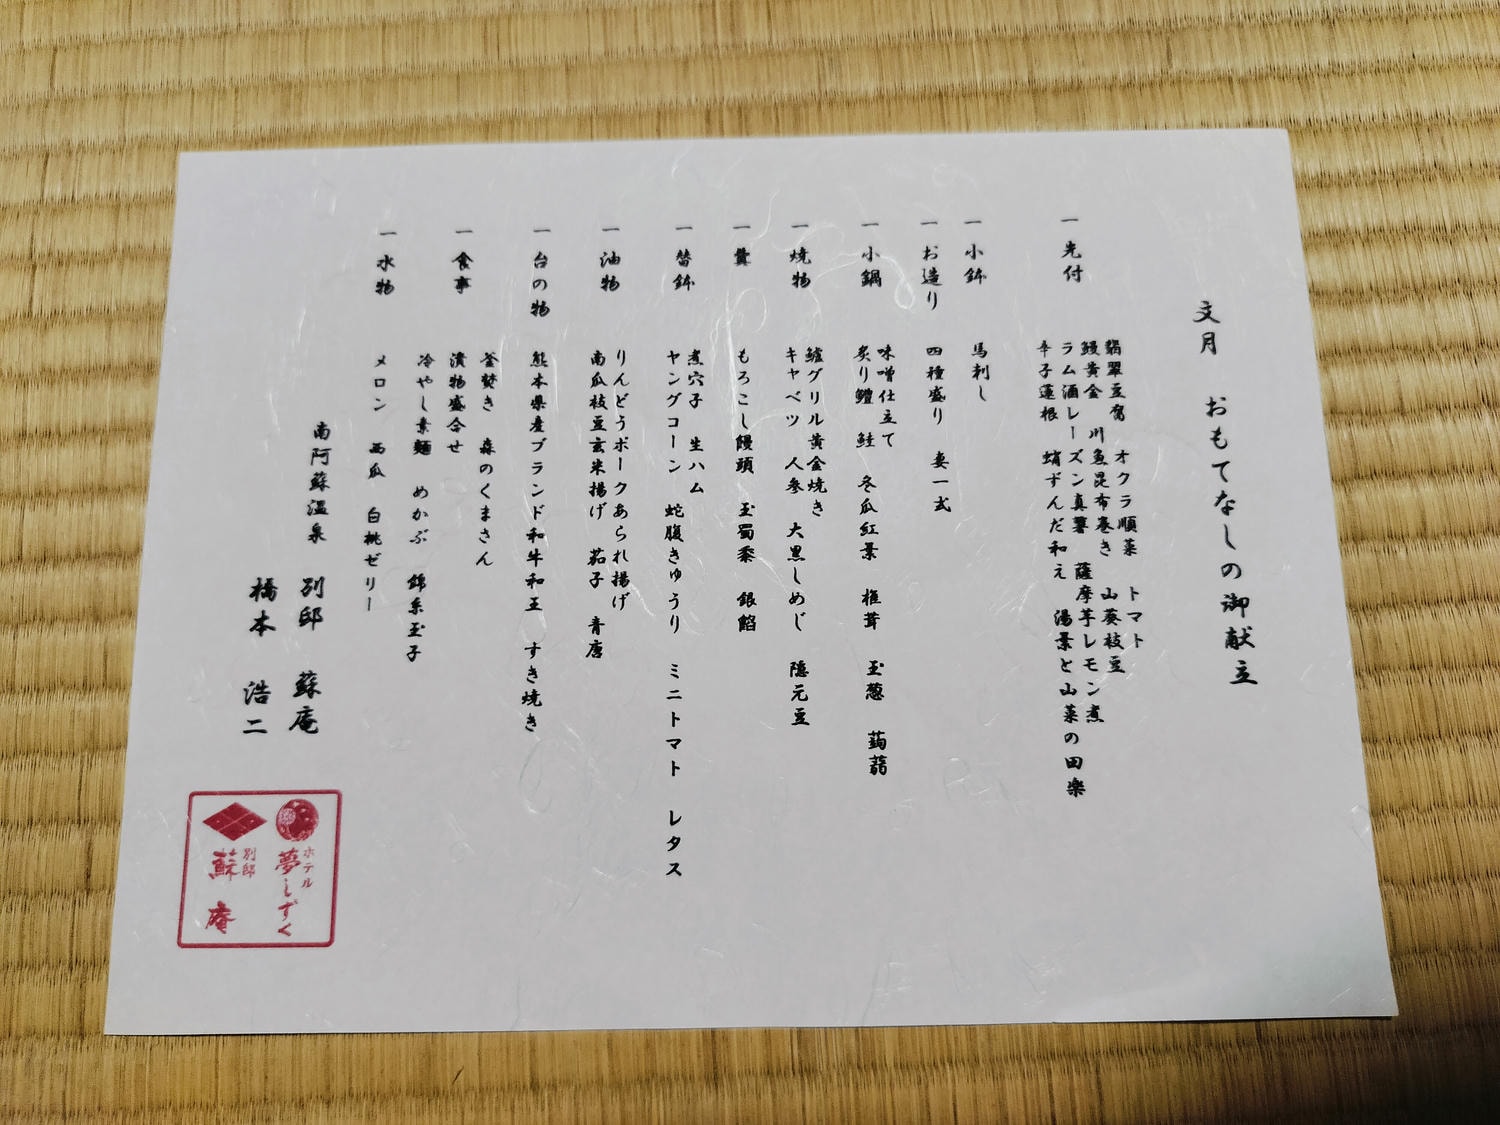 文月 おもてなしの御献立
一 先付
翡翠豆腐 オクラ順菜 トマト
鰻黄金 川魚昆布巻き 山葵枝豆
ラム酒レーズン真薯 薩摩芋レモン煮
辛子蓮根 蛸ずんだ和え 湯葉と山菜の田楽
一 小鉢 馬刺し
一 お造り 四種盛り 妻一式
一 小鍋
味噌仕立て
炙り鱧 鮭 冬瓜紅葉 椎茸 玉葱 蒟蒻
一 焼物
鱸グリル黄金焼き
キャベツ 人参 大黒しめじ 隠元豆
一 羹 もろこし饅頭 玉蜀黍 銀餡
一 替鉢
煮穴子 生ハム
ヤングコーン 蛇腹きゅうり ミニトマト レタス
一 油物
りんどうポークあられ揚げ
南瓜枝豆玄米揚げ 茄子 青唐
一 台の物 熊本県産ブランド和牛和王 すき焼き
一 食事
釜焚き 森のくまさん
漬物盛合せ
冷やし素麺 めかぶ 錦糸玉子
一 水物 メロン 西瓜 白桃ゼリー
南阿蘇温泉 別邸 蘇庵
橋本 浩二
ホテル
夢しずく
別邸
蘇庵